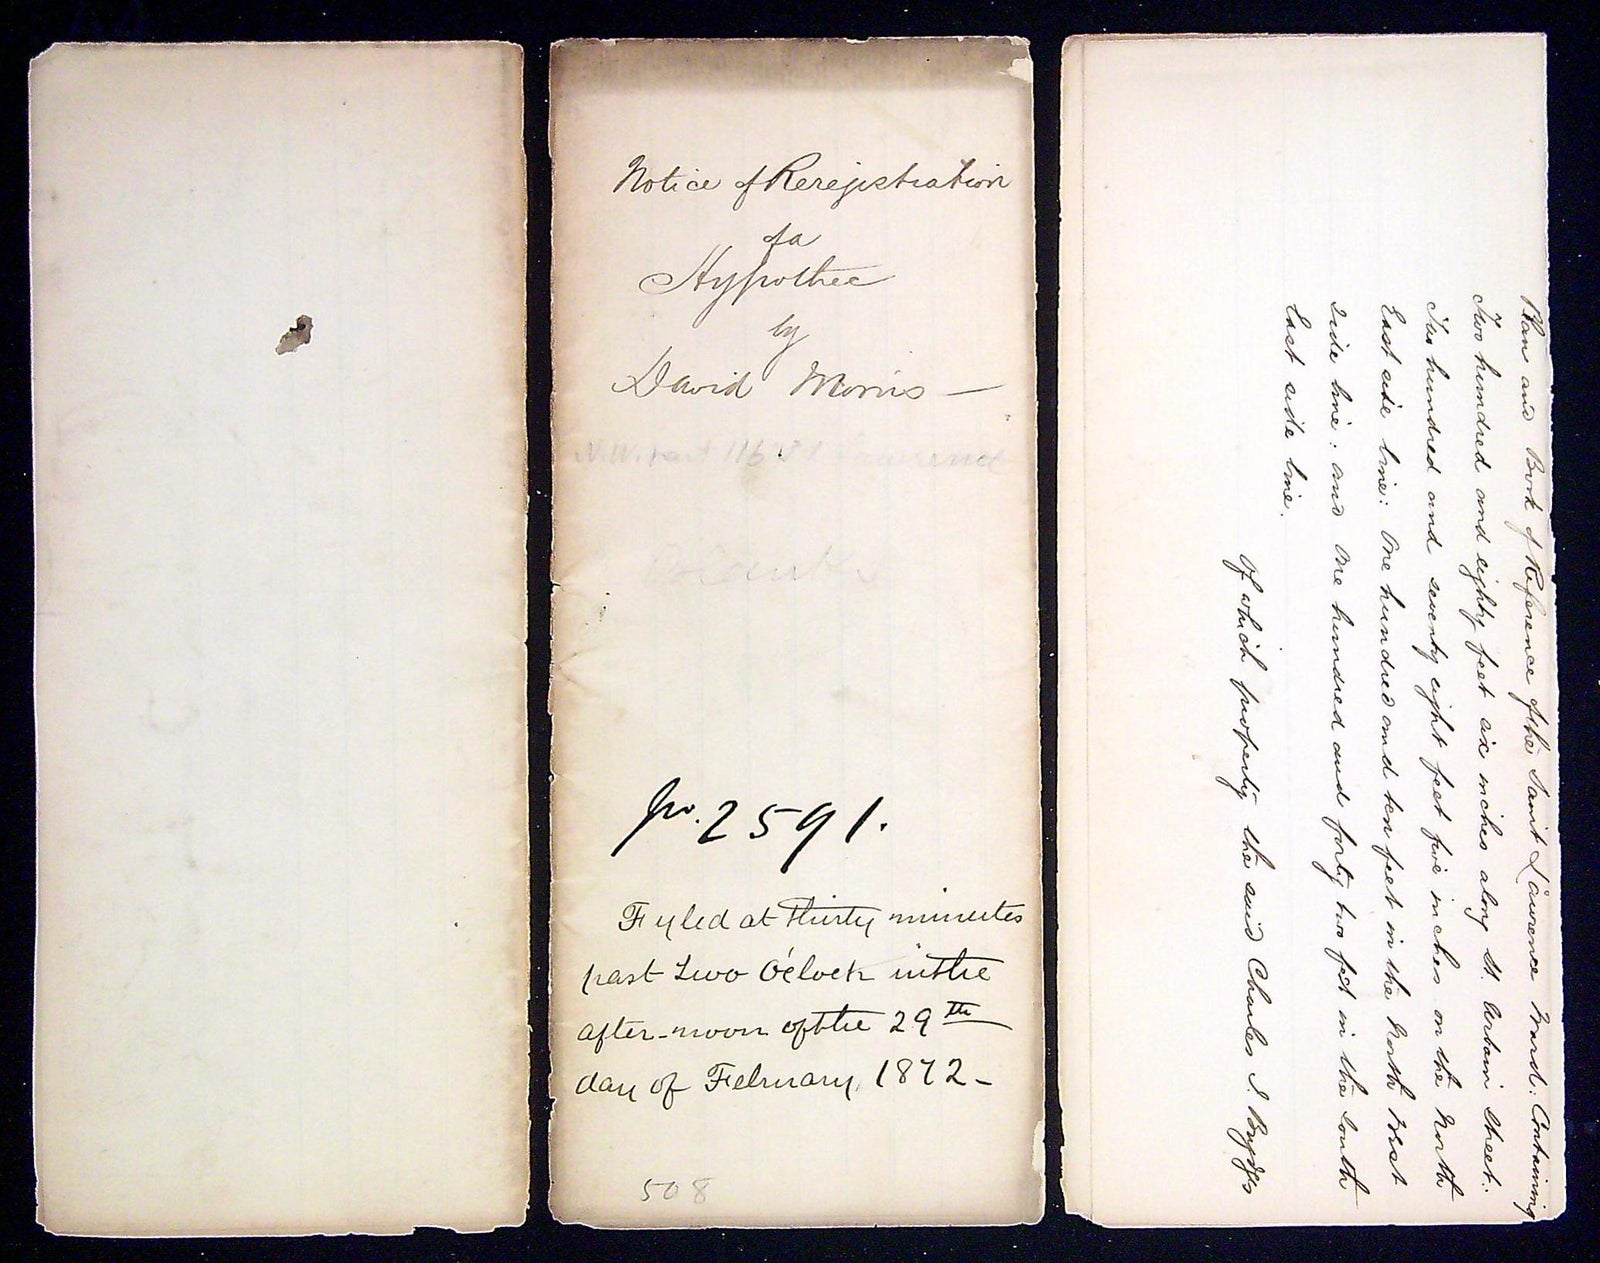 Notice of Reregistration
of a
Hypothec
by
David Morris —
N.W. part 116
No. 2591.
Fyled at thirty minutes
past Two O'Clock in the
after-noon of the 29th
day of February, 1872 -
508
Plan and Book of Reference of the Saint Lawrence Ward: Containing
Two hundred and eighty feet six inches along St. Urbain Street.
Two hundred and seventy eight feet five inches on the North
East side line: One hundred and ten feet in the North West
side line: and One hundred and forty two feet in the South
East side line.
Of which property the said Charles